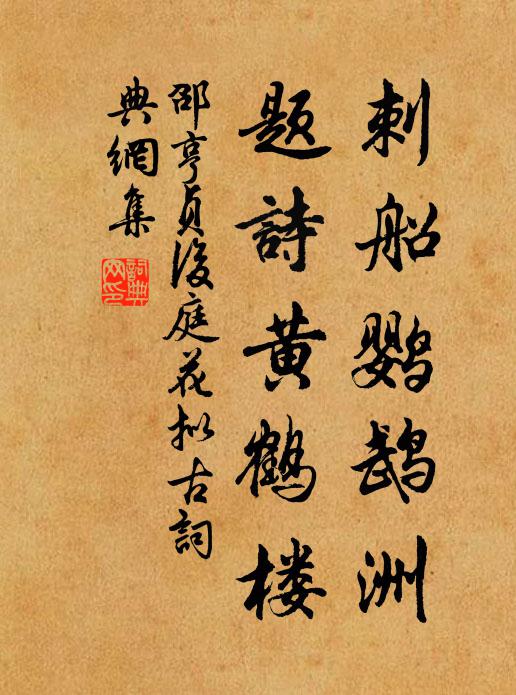 刺船鹦鹉洲
题詩黄鶴楼
邵亨貞後庭花拟古詞
典網集
詞典网印